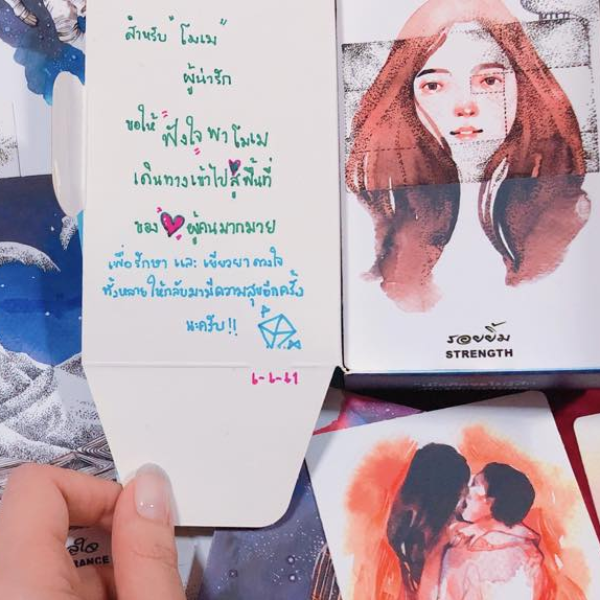 สำหรับ "โมเม"
ผู้น่ารัก
ขอให้ "ฟังใจ" พา โมเม
เดินทางเข้าไปสู่พื้นที่
ของ ผู้คนมากมาย
เพื่อรักษา และ เยียวยาดวงใจ
ทั้งหลายให้กลับมามีความสุขอีกครั้ง
นะครับ!!
6-6-61
รอยยิ้ม
STRENGTH
สู่ใจ
RANCE